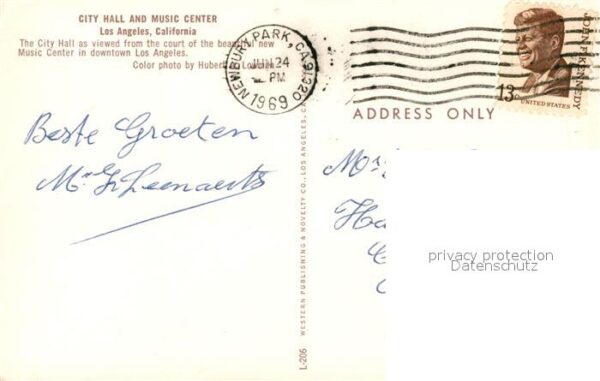 CITY HALL AND MUSIC CENTER
Los Angeles, California
The City Hall as viewed from the court of the beautiful new
Music Center in downtown Los Angeles.
Color photo by Hubert A. Lowman
NEWBURY PARK, CA 91320
JUN 24
PM
1969
JOHN F. KENNEDY
13c
UNITED STATES
ADDRESS ONLY
Beste Groeten
L-206
WESTERN PUBLISHING & NOVELTY CO., LOS ANGELES, C
privacy protection
Datenschutz